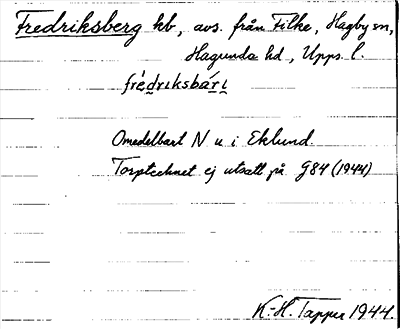 Fredriksberg hb, avs. från Filke, Hagby sn,
Hagunda hd, Upps. l.
frédriksbári
Omedelbart N u i Eklund.
Torptecknet ej utsatt på G84 (1944)
K.-H. Tapper 1944.